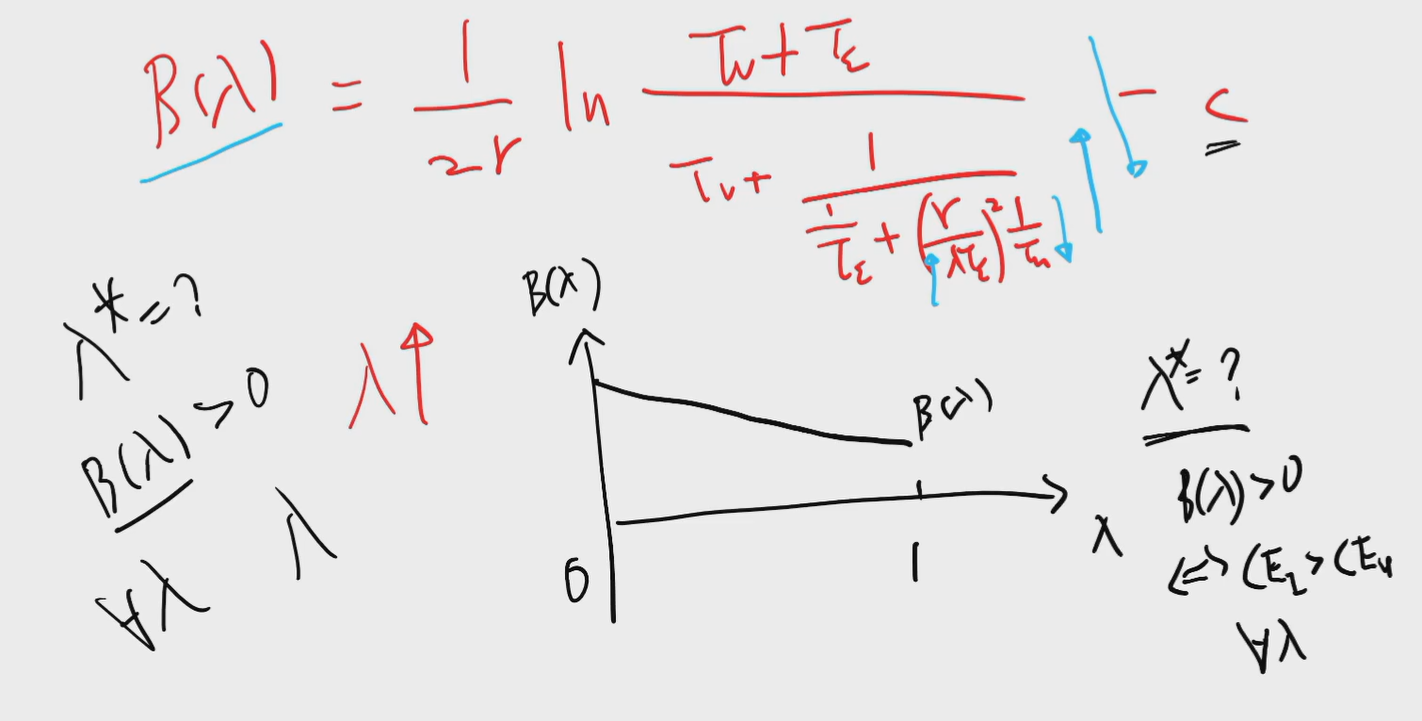 B(λ) = 1/2r ln (τv + τε)/(τv + 1/(1/τε + (r/λτε)² 1/τu)) - c
λ* = ?
B(λ) > 0
∀λ
λ↑
λ
B(λ)
B(λ)
0
1
λ
λ* = ?
B(λ) > 0
⇔ CE_I > CE_U
∀λ